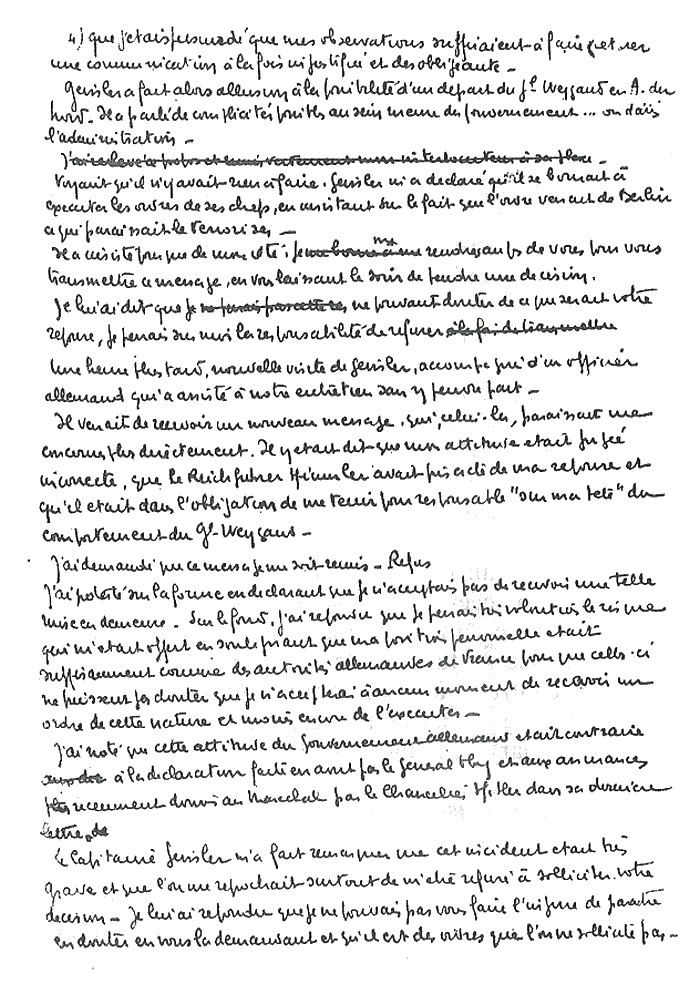 4) que j'étais persuadé que mes observations suffiraient à faire retirer
une communication à la fois injustifiée et désobligeante -
Geissler a fait alors allusion à la possibilité d'un départ du Gl Weygand en A. du
Nord. Il a parlé de complicités possibles au sein même du gouvernement ... ou dans
l'administration -
Voyant qu'il n'y avait rien à faire. Geissler m'a déclaré qu'il se bornait à
exécuter les ordres de ses chefs, en insistant sur le fait que l'ordre venait de Berlin
ce qui paraissait le terroriser -
Il a insisté pour que de mon côté, je me rendisse auprès de vous pour vous
transmettre ce message, en vous laissant le soin de prendre une décision.
Je lui ai dit que je ne pouvant douter de ce que serait votre
réponse, je prenais sur moi la responsabilité de refuser
Une heure plus tard, nouvelle visite de Geissler, accompagné d'un officier
allemand qui a assisté à notre entretien sans y prendre part -
Il venait de recevoir un nouveau message qui, celui-là, paraissait me
concerner plus directement. Il y était dit que mon attitude était jugée
incorrecte, que le Reichführer Himmler avait pris acte de ma réponse et
qu'il était dans l'obligation de me tenir pour responsable "sur ma tête" du
comportement du Gl Weygand -
J'ai demandé que ce message me soit remis - Refus
J'ai protesté sur la forme en déclarant que je n'acceptais pas de recevoir une telle
mise en demeure - Sur le fond, j'ai répondu que je prenais très volontiers le risque
qui m'était offert en soulignant que ma position personnelle était
suffisamment connue des autorités allemandes de France pour que celles-ci
ne puissent pas douter que je n'accepterai à aucun moment de recevoir un
ordre de cette nature et moins encore de l'exécuter -
J'ai noté que cette attitude du Gouvernement allemand était contraire
à la déclaration faite en avril par le général et aux assurances
récemment données au Maréchal par le Chancelier Hitler dans sa dernière
lettre
Le Capitaine Geissler m'a fait remarquer que cet incident était très
grave et que l'on me reprochait surtout de m'être refusé à solliciter votre
décision - Je lui ai répondu que je ne pouvais pas vous faire l'injure de paraître
en douter en vous la demandant et qu'il est des ordres que l'on ne sollicite pas -